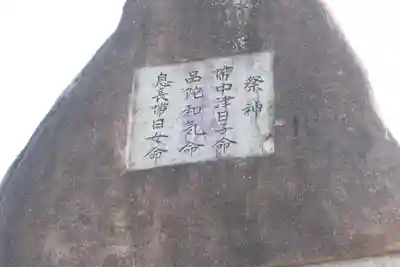 祭神
帯中津日子命
品陀和気命
息長帯日女命